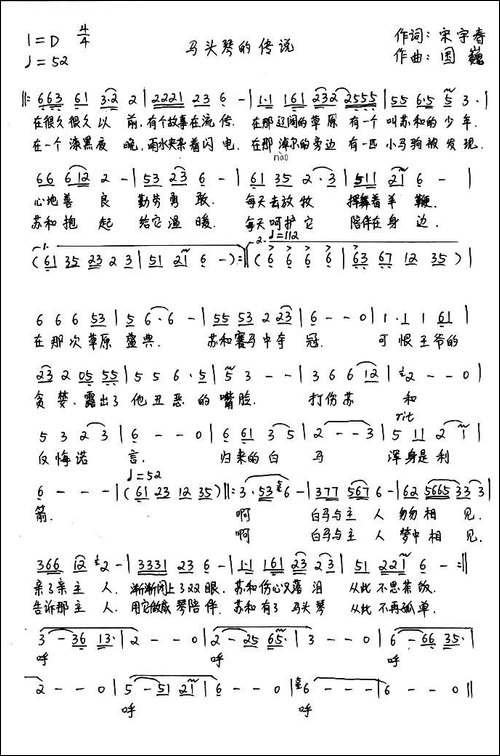 1=D 4/4
马头琴的传说
作词: 宋宇春
♩=52
作曲: 图巍
‖: 663 61 3·2 2 | 2221 23 6 - | 1·1 161 232 2555 | 55 6·5 5 3· |
在很久很久以 前,有个故事在流传. 在那辽阔的草原 有一个 叫苏和的少年.
在一个漆黑夜 晚,雨水夹着闪电. 在那 的旁边 有一匹小马驹被发现.
nao
66 612 2 - | 53 23 6 - | 61 35 2·3 | 511 21 6 - |
心地善 良 勤劳勇敢. 每天去放牧 挥舞着羊 鞭.
苏和抱 起 给它温暖. 每天呵护它 陪伴在身 边.
1.
2. ♩=112
(61 35 23 2 3 | 51 21 6 - ) :‖ (6 6 6 6 | 63 67 12 35 )|
6 6 6 53 | 5 6·6 - | 55 53 2 23 | 6 - - 0 | 1· 1 1 61 |
在那次草原 盛典. 苏和赛马中夺 冠. 可恨王爷的
23 2 05 55 | 5 5 6·5 | 5 3 - - | 3 6 6 12 | 2 - - 0 |
贪婪.露出了他丑恶的嘴脸. 打伤苏 和
rit
5 3 2 3 | 6 - - 0 | 6 61 3 5 | 2 - - 3 | 5 1 1 2 1 |
反悔诺 言. 归来的白 马 浑身是利
♩=52
6 - - - | (61 23 12 35) ‖: 3·53 6 - | 377 567 6 - | 62 5665 33 3 |
箭. 啊 白马与主 人 匆匆相 见.
啊 白马与主 人 梦中相 见.
366 12 2 - | 3331 23 6 - | 1·1 161 23 23 | 51 221 6 - :‖
亲了亲主 人. 渐渐闭上了双眼. 苏和伤心又落泪 从此 不思茶饭.
告诉那主 人. 用它做成琴陪伴. 苏和有了 马头琴 从此 不再孤单.
3 - 36 13· | 2 - - 0 | 2 - 25 65· | 3 - - 0 | 6 - 66 35· |
呼 呼 呼
2 - - 0 | 5 - 51 21 | 6 - - 0 | 6 - - - 6 - - 0 ‖
呼 呼